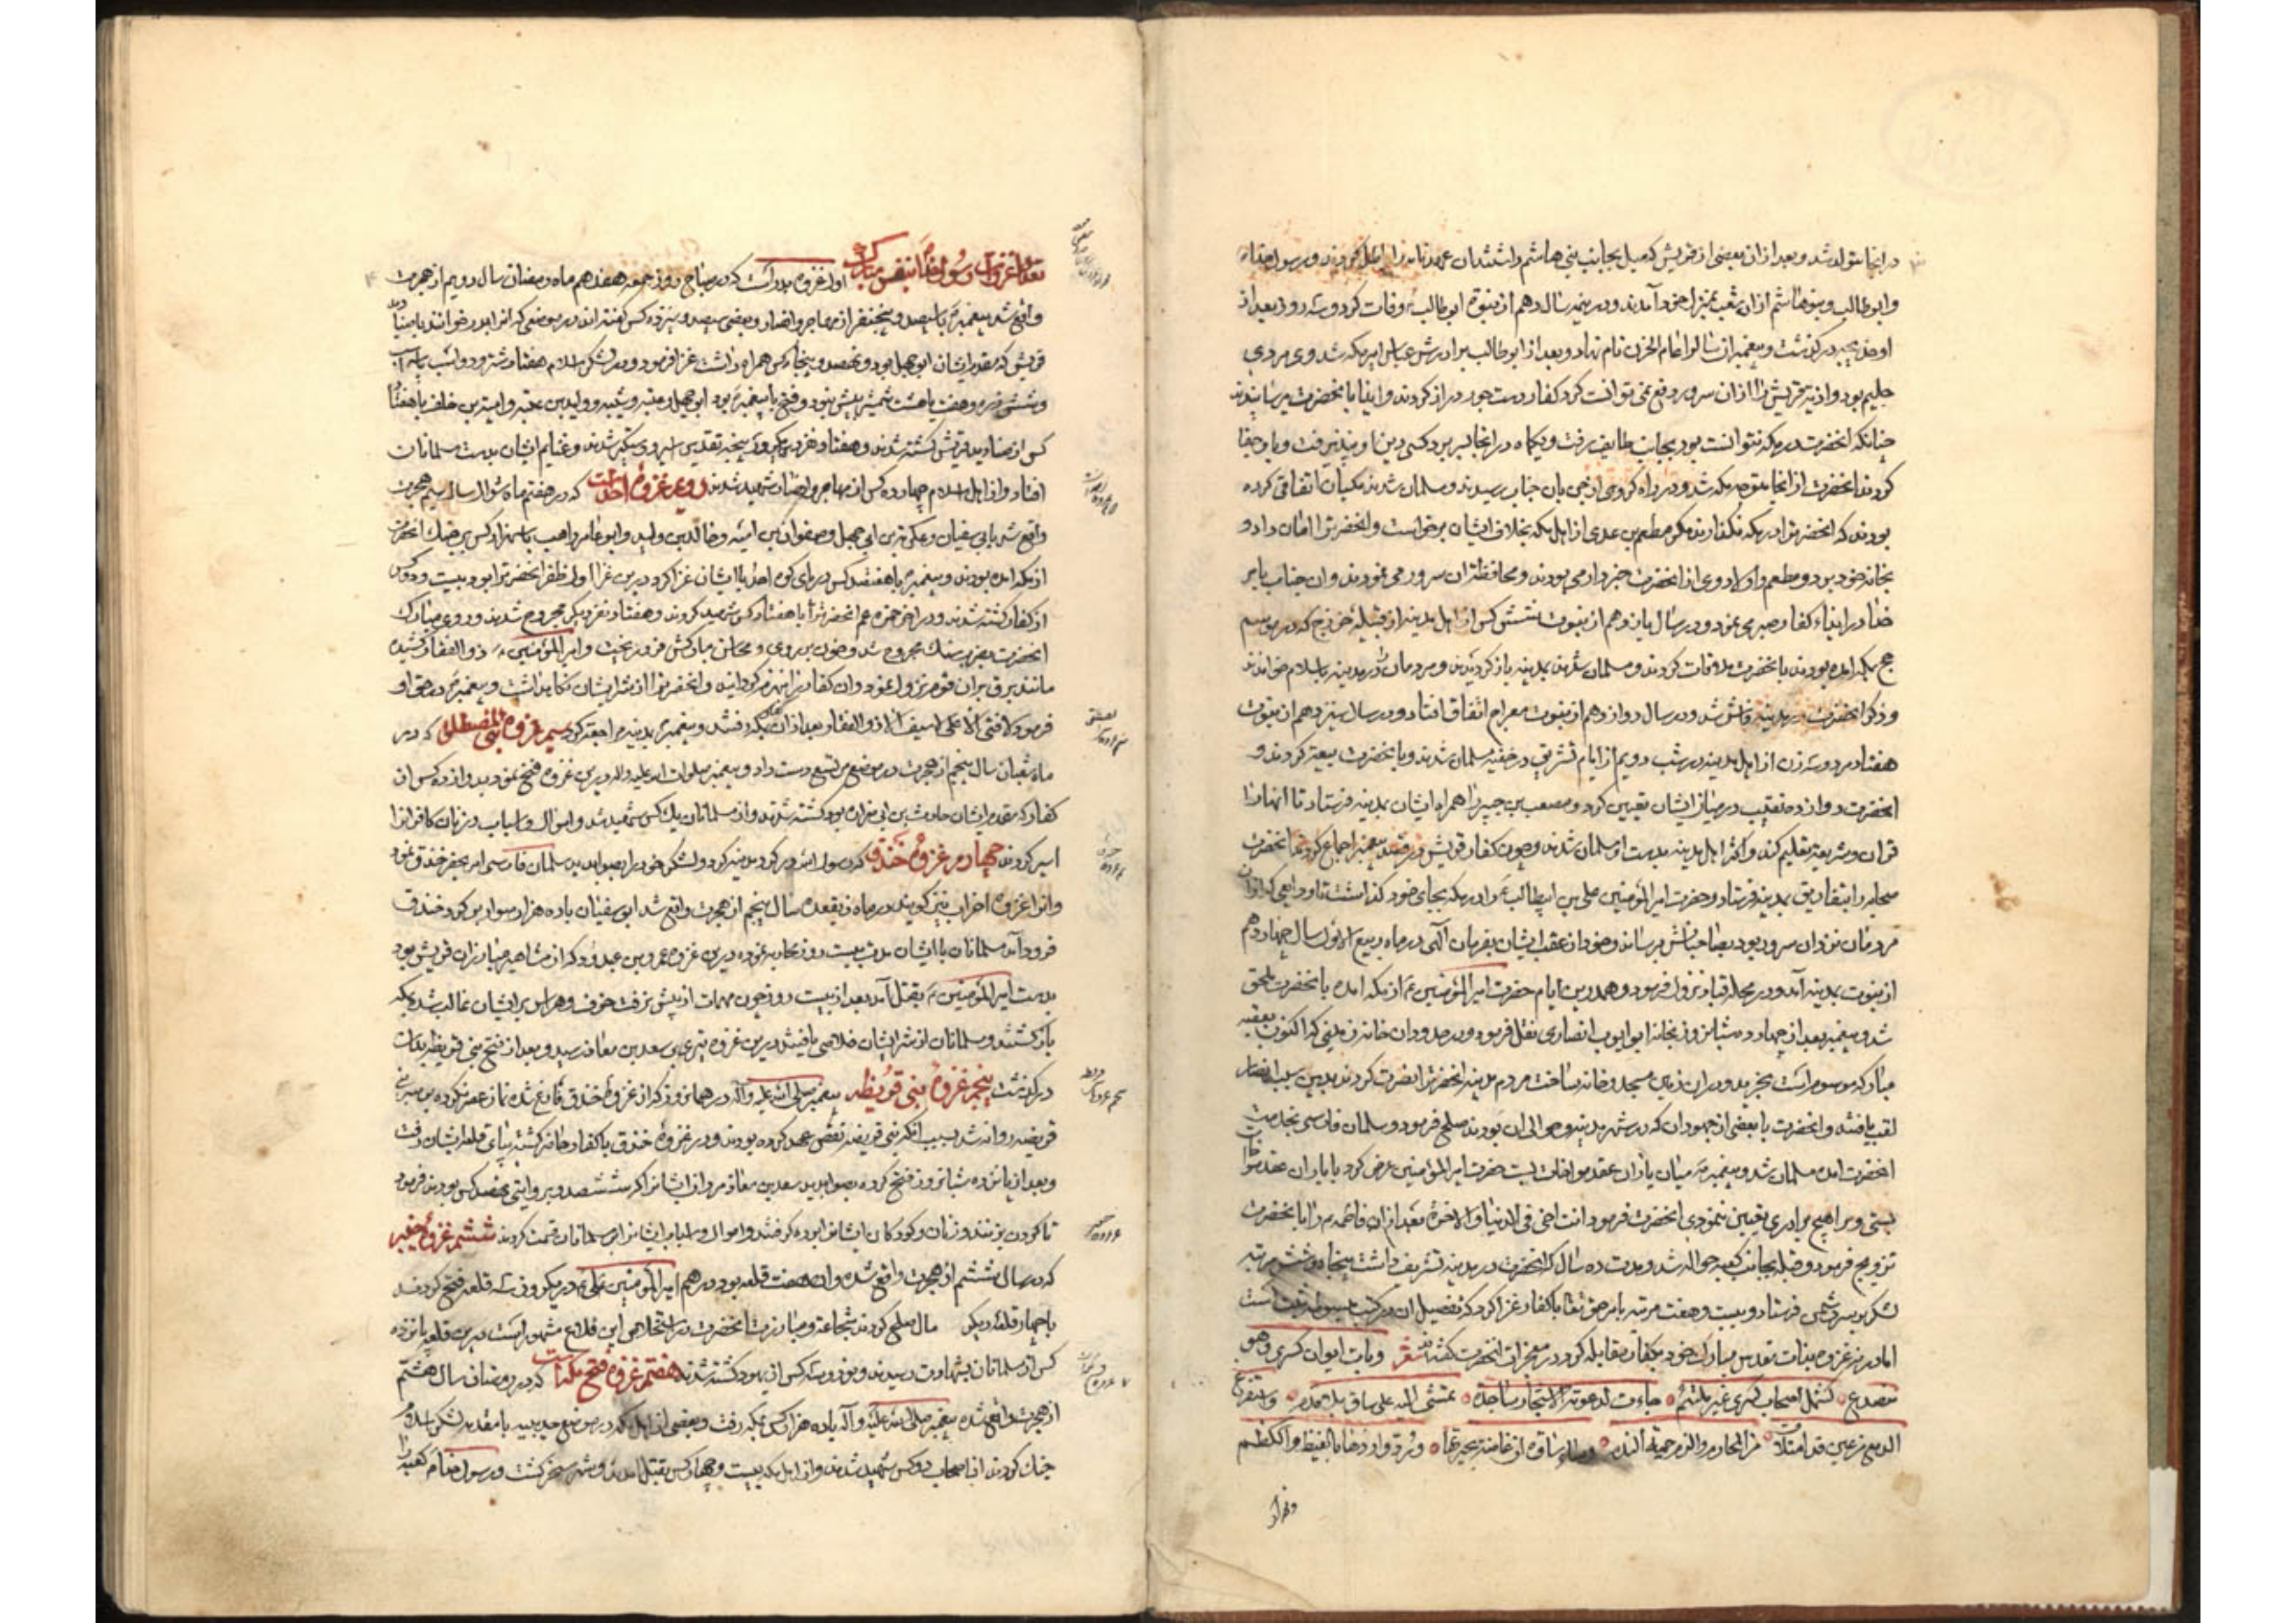 در انجا متولد شد و بعد از ان بعضی از قریش که میل بجانب بنی هاشم داشتند ان عهدنامه را باطل کردند و رسول خدا
و ابوطالب و بنو هاشم از ان شعب بمنزل خود آمدند و در نیمه سال دهم از نبوة ابوطالب وفات کرد و سه روز بعد از
او خدیجه درگذشت و پیغمبر ان سال را عام الحزن نام نهاد و بعد از ابوطالب برادرش عباس امیر مکه شد و وی مردی
حلیم بود و اذیه قریش را از ان سرور دفع نمی توانست کرد کفار دست جور دراز کردند و ایذا بانحضرت میرسانیدند
چنانکه انحضرت در مکه نتوانست بود بجانب طایف رفت و یکماه در انجا بسر برد کسی دین او نپذیرفت و با وی جفا
کردند انحضرت از انجا متوجه مکه شد و در راه کروهی از جن بان جناب رسیدند و مسلمان شدند مکیان اتفاق کرده
بودند که انحضرترا در مکه نگذارند مگر مطعم بن عدی از اهل مکه بخلاف ایشان برخواست و انحضرترا امان داد و
بخانه خود برد و مطعم و اولاد وی از انحضرت خبردار می بودند و محافظة ان سرور می نمودند و ان جناب بامر
خدا در ایذاء کفار صبر می نمود و در سال یازدهم از نبوت شش کس از اهل مدینه از قبیله خزرج که در موسم
حج بمکه امده بودند بانحضرت ملاقات کردند و مسلمان شدند بمدینه باز کردیدند و مردمان را در مدینه باسلام خواندند
و ذکر انحضرت در مدینه فاش شد و در سال دوازدهم از نبوت معراج اتفاق افتاد و در سال سیزدهم از نبوت
هفتاد مرد و سه زن از اهل مدینه در شب دویم از ایام تشریق در خفیه مسلمان شدند و با نحضرت بیعة کردند و
انحضرت دوازده نقیب در میان ایشان تعیین کرد و مصعب بن را همراه ایشان بمدینه فرستاد تا انها را
قران و شریعة تعلیم کند و اکثر اهل مدینه بدست او مسلمان شدند و چون کفار قریش در قصد پیغمبر اجماع کردند انحضرت
صحابه را بتفاریق بمدینه فرستاد و حضرت امیر المؤمنین علی بن ابیطالب ع را در مکه بجای خود کذاشت تا ودایعی که از ان
مردمان نزد ان سرور بود بصاحبانش برساند و خود از عقب ایشان بفرمان الهی در ماه ربیع الاول سال چهاردهم
از نبوت بمدینه آمد و در محله قبا نزول فرمود و همدرین ایام حضرت امیر المؤمنین ع از مکه امده با نحضرت ملحق
شد و پیغمبر بعد از چهارده شبانروز بخانه ابو ایوب انصاری نقل فرمود و در جلو ان خانه زمینی که اکنون ببقعه
مبارکه موسوم است بخرید و در ان زمین مسجد و خانه ساخت مردم مدینه انحضرترا نصرت کردند بدین سبب انصار
لقب یافتند و انحضرت با بعضی از جهودان که در شهر مدینه و حوالی ان بودند صلح فرمود و سلمان فارسی بخدمت
انحضرت امده مسلمان شد و پیغمبر میان یاران عقد مواخات بست حضرت امیر المؤمنین عرض کرد یاران عقد مواخات
بستی و مرا هیچ برادری تعیین ننمودی انحضرت فرمود انت اخی فی الدنیا و الاخرة بعد از ان فاطمه را با نحضرت
تزویج فرمود و قبله بجانب کعبه حواله شد و مدت ده سال که انحضرت در مدینه تشریف داشت پنجاه و شش مرتبه
لشکر بر سر دشمن فرستاد و بیست و هفت مرتبه بامر حق تعالی با کفار غزا کرد که تفصیل ان در کتب مبسوطه ثبت است
اما در نه غزوه بذات مقدس مبارک خود بکفار مقابله کرد در معجزات انحضرت کفته اند شعر و بات ایوان کسری و هو
منصدع کشمل اصحاب کسری غیر ملتئم جاءت لدعوته الاشجار ساجدة تمشی الیه علی ساق بلا قدم و استفرغ
الدمع من عین قد امتلأت من المحارم و الزم حمیة الندم و ساء ساوة ان غاضت بحیرتها و رد واردها بالغیظ
تعداد غزوات رسول خدا بنفس مبارک اول غزوه بدر است که در صباح روز جمعه هفدهم ماه رمضان سال دویم از هجرت
واقع شد پیغمبر با سیصد و پنج نفر از مهاجر و انصار و بعضی سیصد و سیزده کس کفته اند در موضعی که انرا بدر خوانند با
قریش که مقدم ایشان ابو جهل بود و نهصد و پنجاه کس همراه داشت غزا فرمود و در لشکر اسلام هفتاد شتر و دو اسب
و شش زره و هفت یا هشت شمشیر بیش نبود و فتح پیغمبر را بود ابی جهل و عتبه و شیبه و ولید بن عتبه و امیة بن خلف با هفتاد
کس از صنادید قریش کشته شدند و هفتاد نفر دیگر اسیر و دستکیر شدند و غنایم ایشان بدست مسلمانان
افتاد و از اهل اسلام چهارده کس از مهاجر و انصار شهید شدند دویم غزوه احد است که در هفتم ماه شوال سال سیم هجرت
واقع شد با بی سفیان و عکرمة بن ابی جهل و صفوان بن امیه و خالد بن ولید و ابو عامر راهب با سه هزار کس بجنک انحضرت
از مکه امده بودند و پیغمبر با هفتصد کس در پای کوه احد با ایشان غزا کرد درین غزا اول ظفر انحضرترا بود بیست و دو کس
از کفار کشته شدند و در اخر حمزه عم انحضرترا با هفتاد کس شهید کردند و هفتاد نفر دیگر مجروح شدند و روی مبارک
انحضرت بضرب سنک مجروح شد و خون بر روی و محاسن مبارکش فرو ریخت و امیر المؤمنین ع ذو الفقار کشیده
مانند برق بران قوم نزول نمود و ان کفار را منهزم کردانید و انحضرترا از شر ایشان نکاهداشت و پیغمبر در حق او
فرمود لا فتی الا علی لا سیف الا ذو الفقار بعد از ان بمکه رفتند و پیغمبر بمدینه مراجعت کرد سیم غزوه بنی المصطلق که در
ماه شعبان سال پنجم از هجرت در موضع مریسع دست داد و پیغمبر صلوات الله علیه و اله درین غزوه فتح نمود و دوازده کس از
کفار که مقدم ایشان حارث بن ابی ضرار بود کشته شدند و از مسلمانان یک کس شهید شد و اموال و اسباب و زنان کافرانرا
اسیر کردند چهارم غزوه خندق که رسول الله در کرد مدینه کرد و لشکر خود را بصوابدید سلمان فارسی امر بحفر خندق نمود
و انرا غزوه احزاب نیز کویند در ماه ذیقعده سال پنجم از هجرت واقع شد ابو سفیان با ده هزار سوار بر کرد خندق
فرود آمد مسلمانان با ایشان مدت بیست روز محاربه نموده درین غزوه عمرو بن عبدود که از مشاهیر مبارزان قریش بود
بدست امیر المؤمنین ع بقتل آمد بعد از بیست روز چون مهمات از پیش نرفت خوف و هراس بر ایشان غالب شد بمکه
باز کشتند و مسلمانان از شر ایشان خلاصی یافتند درین غزوه تیری بر سعد بن معاذ رسید و بعد از فتح بنی قریظه بدان
درگذشت پنجم غزوه بنی قریظه پیغمبر صلی الله علیه و آله در همان روز که از غزوه خندق فارغ شده نماز عصر نکرده بر سر بنی
قریضه روانه شد بسبب انکه بنی قریضه نقض عهد کرده بودند و در غزوه خندق با کفار حاضر کشته بپای قلعه ایشان رفت
و بعد از پانزده شبانروز فتح کرده بصوابدید سعد بن معاذ مردان ایشانرا که ششصد و بروایتی نهصد کس بودند فرمود
تا کردن بزنند و زنان و کودکان ایشانرا برده کرفتند و اموال و اسباب ایشانرا بر مسلمانان قسمت کردند ششم غزوه خیبر
که در سال ششم از هجرت واقع شده و ان هفت قلعه بود در هم امیر المؤمنین علی ع در یکروز سه قلعه فتح کردند
با چهار قلعه دیکر مال صلح کردند شجاعة و مبارزت انحضرت در استخلاص این قلاع مشهور است درین قلعه پانزده
کس از مسلمانان بشهادت رسیدند و نود و سه کس از یهود کشته شدند هفتم غزوه فتح مکه است که در رمضان سال هشتم
از هجرت واقع شده پیغمبر صلی الله علیه و آله با ده هزار کس بمکه رفت و بعضی از اهل مکه در موضع حدیبیه با مقدمه لشکر اسلام
جنک کردند از اصحاب دو کس شهید شدند و از اهل مکه بیست و چهار کس بقتل امدند و شهر مسخر کشت و رسول خدا